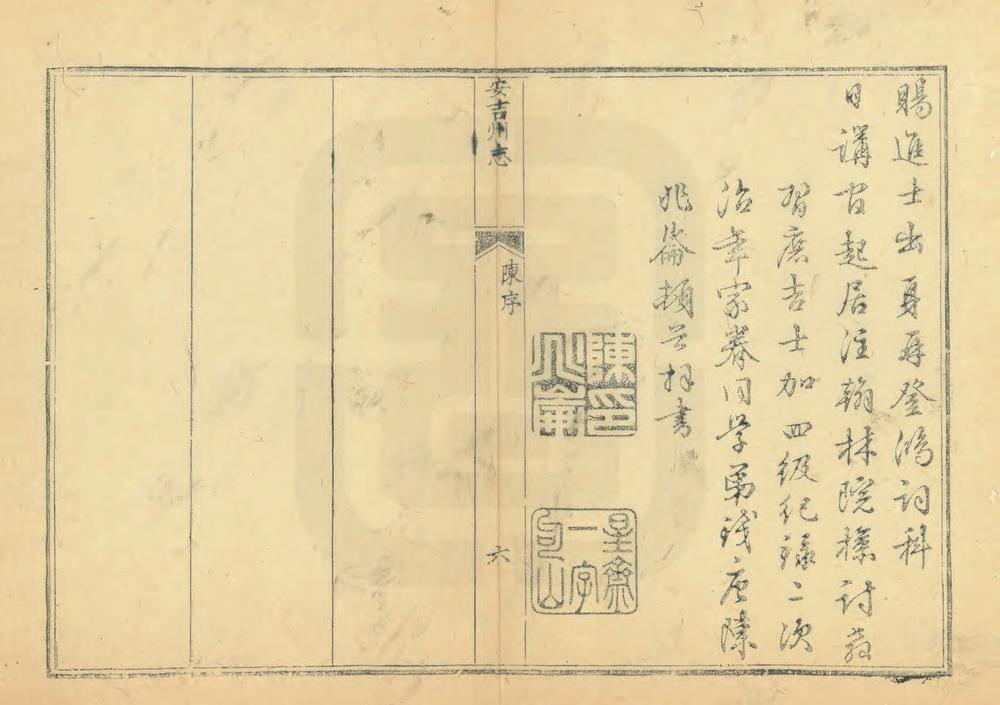 賜進士出身再登鴻詞科
日講官起居注翰林院檢討前
習庶吉士加四級紀錄二次
治年家眷同學弟錢唐陳
兆崙頓首拜書
陳印兆崙
星齋一字句山
安吉州志
陳序
六